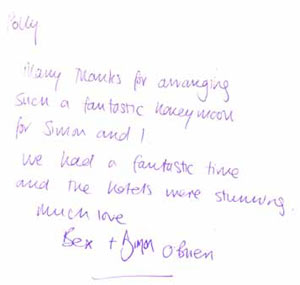 Polly
Many thanks for arranging
Such a fantastic honeymoon
for Simon and I.
We had a fantastic time
and the hotels were stunning.
Much love
Bex + Simon O'Brien